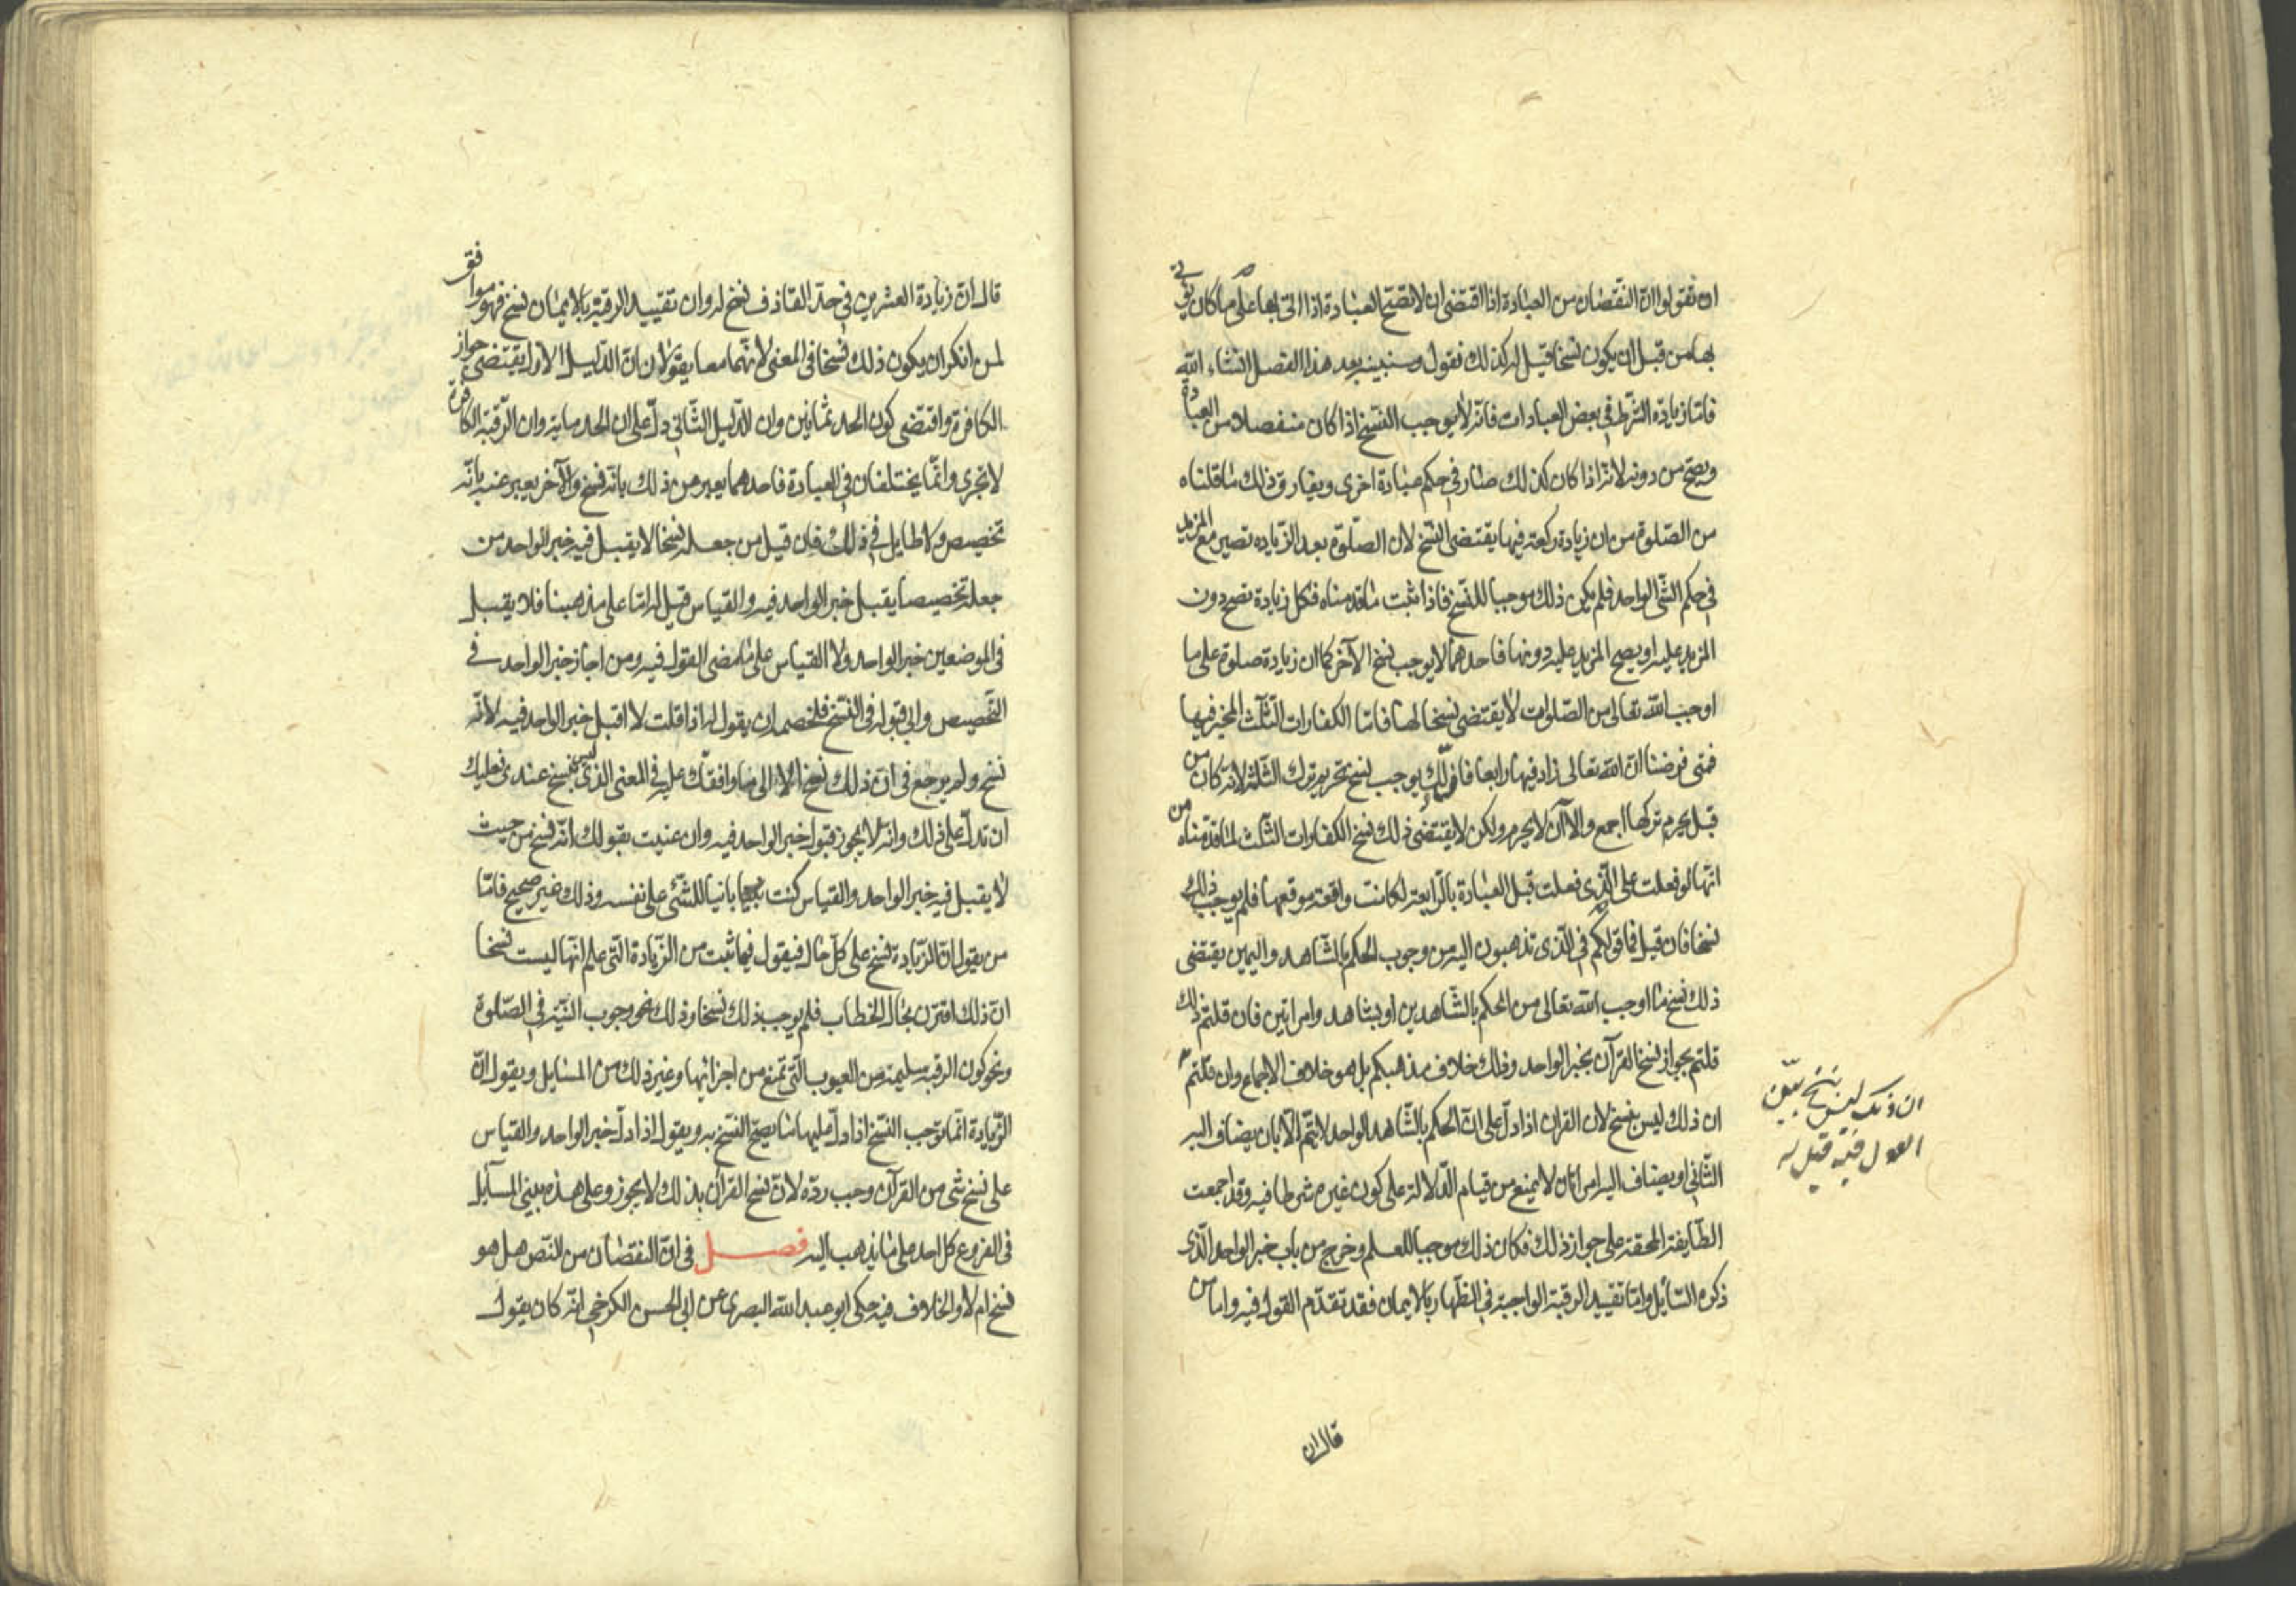 ان تقولوا ان النقصان من العبادة اذا اقتضى ان لا تصح العبادة اذا اتى بها على ما كان يؤتى
بها من قبل ان يكون نسخا قيل له كذلك نقول وسنبينه بعد هذا الفصل انشاء الله
فاما زيادة الشرط في بعض العبادات فانه لا يوجب النسخ اذا كان منفصلا من العبادة
ويصح من دونه لانه اذا كان كذلك صار في حكم عبادة اخرى ويفارق ذلك ما قلناه
من الصلوة من ان زيادة ركعة فيها يقتضى النسخ لان الصلوة بعد الزيادة تصير مع المزيد
في حكم الشئ الواحد فلم يكن ذلك موجبا للنسخ فاذا ثبت ما قدمناه فكل زيادة تصح دون
المزيد عليه او يصح المزيد عليه دونها فاحدهما لا يوجب نسخ الآخر كما ان زيادة صلوة على ما
اوجب الله تعالى من الصلوات لا يقتضى نسخا لها فاما الكفارات الثلث المخير فيها
فمتى فرضنا ان الله تعالى زاد فيها رابعا فان ذلك يوجب نسخ تحريم ترك الثلثة لانه كان من
قبل يحرم تركها اجمع والآن لا يحرم ولكن لا يقتضى ذلك نسخ الكفارات الثلث لما قدمناه من
انها لو فعلت على الذى فعلت قبل العبادة بالرابعة لكانت واقعة موقعها فلم يوجب ذلك
نسخا فان قيل فما قولكم في الذى تذهبون اليه من وجوب الحكم بالشاهد واليمين يقتضى
ذلك نسخ ما اوجب الله تعالى من الحكم بالشاهدين او بشاهد وامراتين فان قلتم ذلك
قلتم بجواز نسخ القرآن بخبر الواحد وذلك خلاف مذهبكم بل هو خلاف الاجماع وان قلتم
ان ذلك ليس بنسخ لان القران اذا دل على ان الحكم بالشاهد الواحد لا يتم الا بان يضاف اليه
الثاني او يضاف اليه امراتان لا يمنع من قيام الدلالة على كون غيره شرطا فيه وقد اجمعت
الطايفة المحقة على جواز ذلك فكان ذلك موجبا للعلم وخرج من باب خبر الواحد الذى
ذكره السائل واما تقييد الرقبة الواجبة في الظهار بالايمان فقد تقدم القول فيه واما من
ان ذلك ليس بنسخ بين
القول فيه قيل له
قال ان
قال ان زيادة العشرين في حد القاذف نسخ له وان تقييد الرقبة بالايمان نسخ فهو موافق
لمن انكر ان يكون ذلك نسخا في المعنى لانهما معا يقولان ان الدليل الاول يقتضى جواز
الكافرة واقتضى كون الحد ثمانين وان الدليل الثاني دل على ان الحد ماية وان الرقبة الكافرة
لا تجزى وانما يختلفان في العبادة فاحدهما يعبر من ذلك بانه نسخ والآخر يعبر عنه بانه
تخصيص ولا طايل في ذلك فان قيل من جعله نسخا لا يقبل فيه خبر الواحد من
جعله تخصيصا يقبل خبر الواحد فيه والقياس قيل له اما على مذهبنا فلا يقبل
في الموضعين خبر الواحد ولا القياس على ما مضى القول فيه ومن اجاز خبر الواحد في
التخصيص وابى قبوله في النسخ فلخصمه ان يقول له اذا قلت لا اقبل خبر الواحد فيه لانه
نسخ ولم يرجع في ان ذلك نسخ الا الى ما وافقتك عليه في المعنى الذى ليس بنسخ عندى فعليك
ان تدل على ذلك وانه لا يجوز قبول خبر الواحد فيه وان عنيت بقولك انه نسخ من حيث
لا يقبل فيه خبر الواحد والقياس كنت بانيا للشئ على نفسه وذلك غير صحيح فاما
من يقول ان الزيادة نسخ على كل حال فيقول فيما ثبت من الزيادة التى علم انها ليست نسخا
ان ذلك اقترن بحال الخطاب فلم يوجب ذلك نسخا وذلك نحو وجوب النية في الصلوة
ونحو كون الرقبة سليمة من العيوب التى تمنع من اجزائها وغير ذلك من المسايل ويقول ان
الزيادة انما توجب النسخ اذا دل عليها ما يصح النسخ به ويقول اذا دل خبر الواحد والقياس
على نسخ شئ من القرآن وجب رده لان نسخ القرآن بذلك لا يجوز وعلى هذه يبنى المسآيل
في الفروع كل احد على ما يذهب اليه فصل في ان النقصان من النص هل هو
نسخ ام لا والخلاف فيه حكى ابو عبد الله البصرى عن ابى الحسن الكرخى انه كان يقول